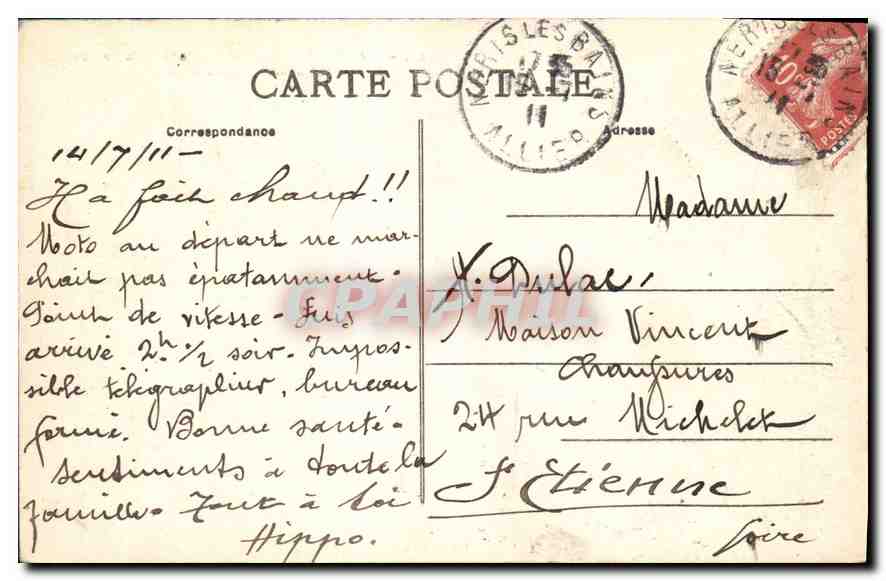 CARTE POSTALE
Correspondance
Adresse
NERIS LES BAINS
ALLIER
NERIS
BAINS
ALLIER
10
POSTES
14/7/11 -
Il a fait chaud!!
Moto au départ ne mar-
chait pas épatamment.
Point de vitesse - Suis
arrivé 2h 1/2 soir. Impos-
sible télégraphier, bureau
fermé. Bonne santé -
sentiments à toute la
famille. Tout à toi
Hippo.
Madame
A. Dulac,
Maison Vincent
Chaussures
24 rue Michelet
St Etienne
Loire
CPAPHIL